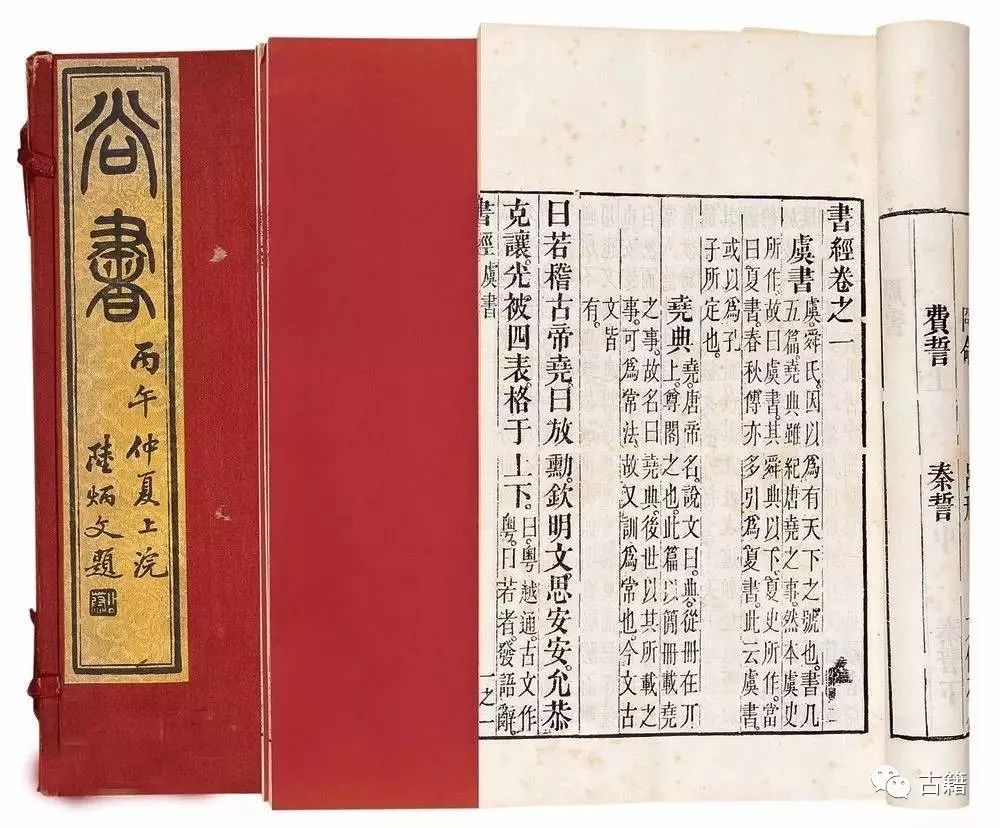 尚書
丙午仲夏上浣
陸炳文題
費誓 秦誓
書經卷之一
虞書 虞。舜氏。因以爲有天下之號也。書凡
五篇。堯典雖紀唐堯之事。然本虞史
所作。故曰虞書。其舜典以下。夏史所作。當
曰夏書。春秋傳亦多引爲夏書。此云虞書。
或以爲孔
子所定也。
堯典 堯。唐帝名。說文曰。典。從冊在丌
上。尊閣之也。此篇以簡冊載堯
之事。故名曰堯典。後世以其所載之
事。可爲常法。故又訓爲常也。今文古
文皆
有。
曰若稽古帝堯。曰放勳。欽明文思安安。允恭
克讓。光被四表。格于上下。 曰。粵越通。古文作
粵。曰若者。發語辭。
書經 虞書 一之一
古籍